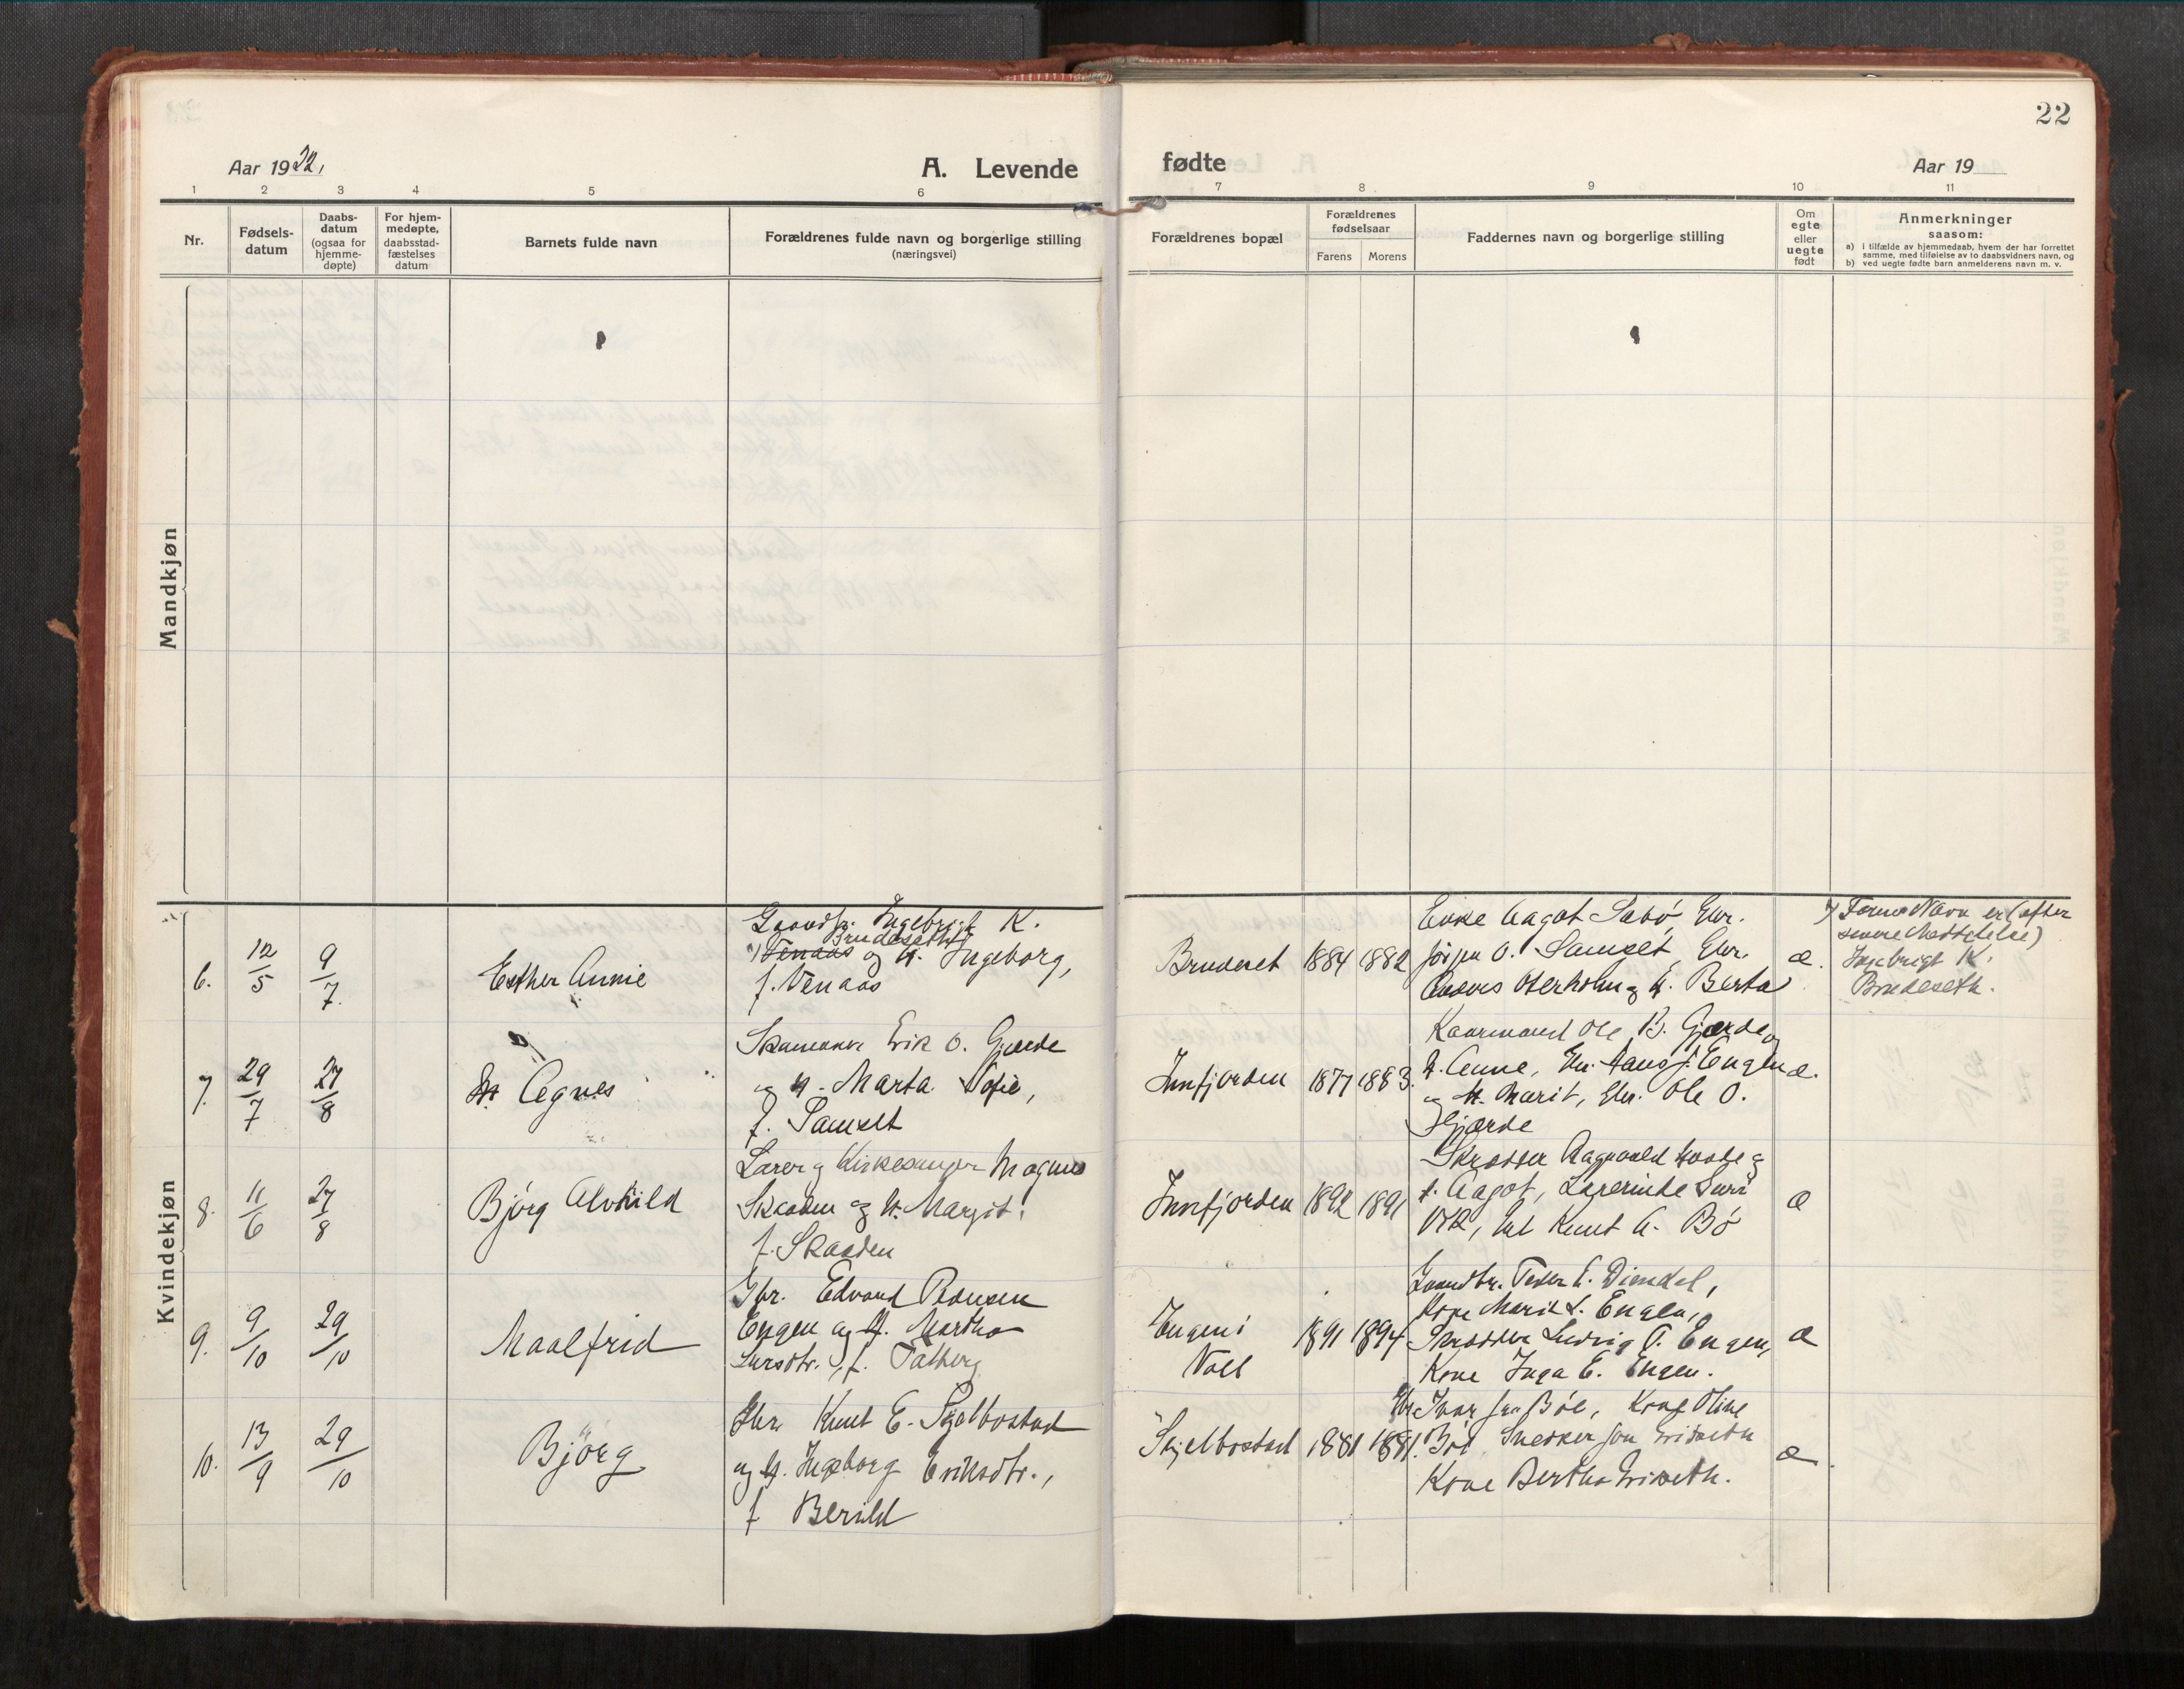 22
Aar 1922,
A. Levende
fødte
Aar 19
1 2 3 4 5 6 7 8 9 10 11
Nr.
Fødsels-
datum
Daabs-
datum
(ogsaa for
hjemme-
døpte)
For hjem-
medøpte,
daabsstad-
fæstelses
datum
Barnets fulde navn
Forældrenes fulde navn og borgerlige stilling
(næringsvei)
Forældrenes bopæl
Forældrenes
fødselsaar
Farens Morens
Faddernes navn og borgerlige stilling
Om
egte
eller
uegte
født
Anmerkninger
saasom:
a) i tilfælde av hjemmedaab, hvem der har forrettet
samme, med tilføielse av to daabsvidners navn, og
b) ved uegte fødte barn anmelderens navn m. v.
Mandkjøn
Kvindekjøn
6. 12/5 9/7. Esther Annie
Gaardbr. Ingebrigt K.
Brudeseth
Venaas og H. Ingeborg,
f. Venaas
Bruderet 1884 1882
Enke Aagot Sæbø, Gbr.
Jørgen O. Samset, Gbr.
Anders Oterholm og H. Berta
æ.
Farens Navn er (efter
senere Meddelelse)
Ingebrigt K.
Brudeseth.
7. 29/7 27/8 Agnes
Erik O. Gjærde
og H. Marta Sofie,
f. Samset
Innfjorden 1877 1883.
Kaarmand Ole B. Gjærde og
H. Anne, Gbr. Hans J. Engen
og H. Marit, Gbr. Ole O.
Gjærde
æ.
8. 11/6 27/8 Bjørg Alvhild
Lærer og Kirkesanger Magnus
Skaaden og H. Margit,
f. Skaaden
Innfjorden 1892 1891
Skrædder Ragnvald og
H. Aagot, Lærerinde
Vik, Knut A. Bø
æ
9. 9/10 29/10 Maalfrid
Gbr. Edvard Pedersen
Engen og H. Martha
Larsdtr., f. Talberg
Engen i
Voll
1891 1894
Gaardbr. Peder E. Diendal,
Kone Marit L. Engen,
Skrædder Ludvig P. Engen,
Kone Inga E. Engen.
æ
10. 13/9 29/10 Bjørg
Gbr. Knut E. Skjelbostad
og H. Ingeborg Eriksdtr.,
f Berild
Skjelbostad 1881 1881.
Gbr. Ivar Bøe, Kone Oline
Bøe, Snedker Jon Griseth
Kone Bertha Griseth.
æ.